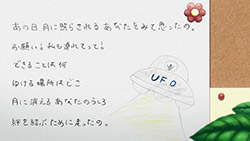 あの日 月に照らされる あなたをみて思ったの。
お願い！私も連れてって！
できることは何
ゆける場所はどこ
月に消える あなたのうしろ
絆を結ぶために走ったの。
UFO